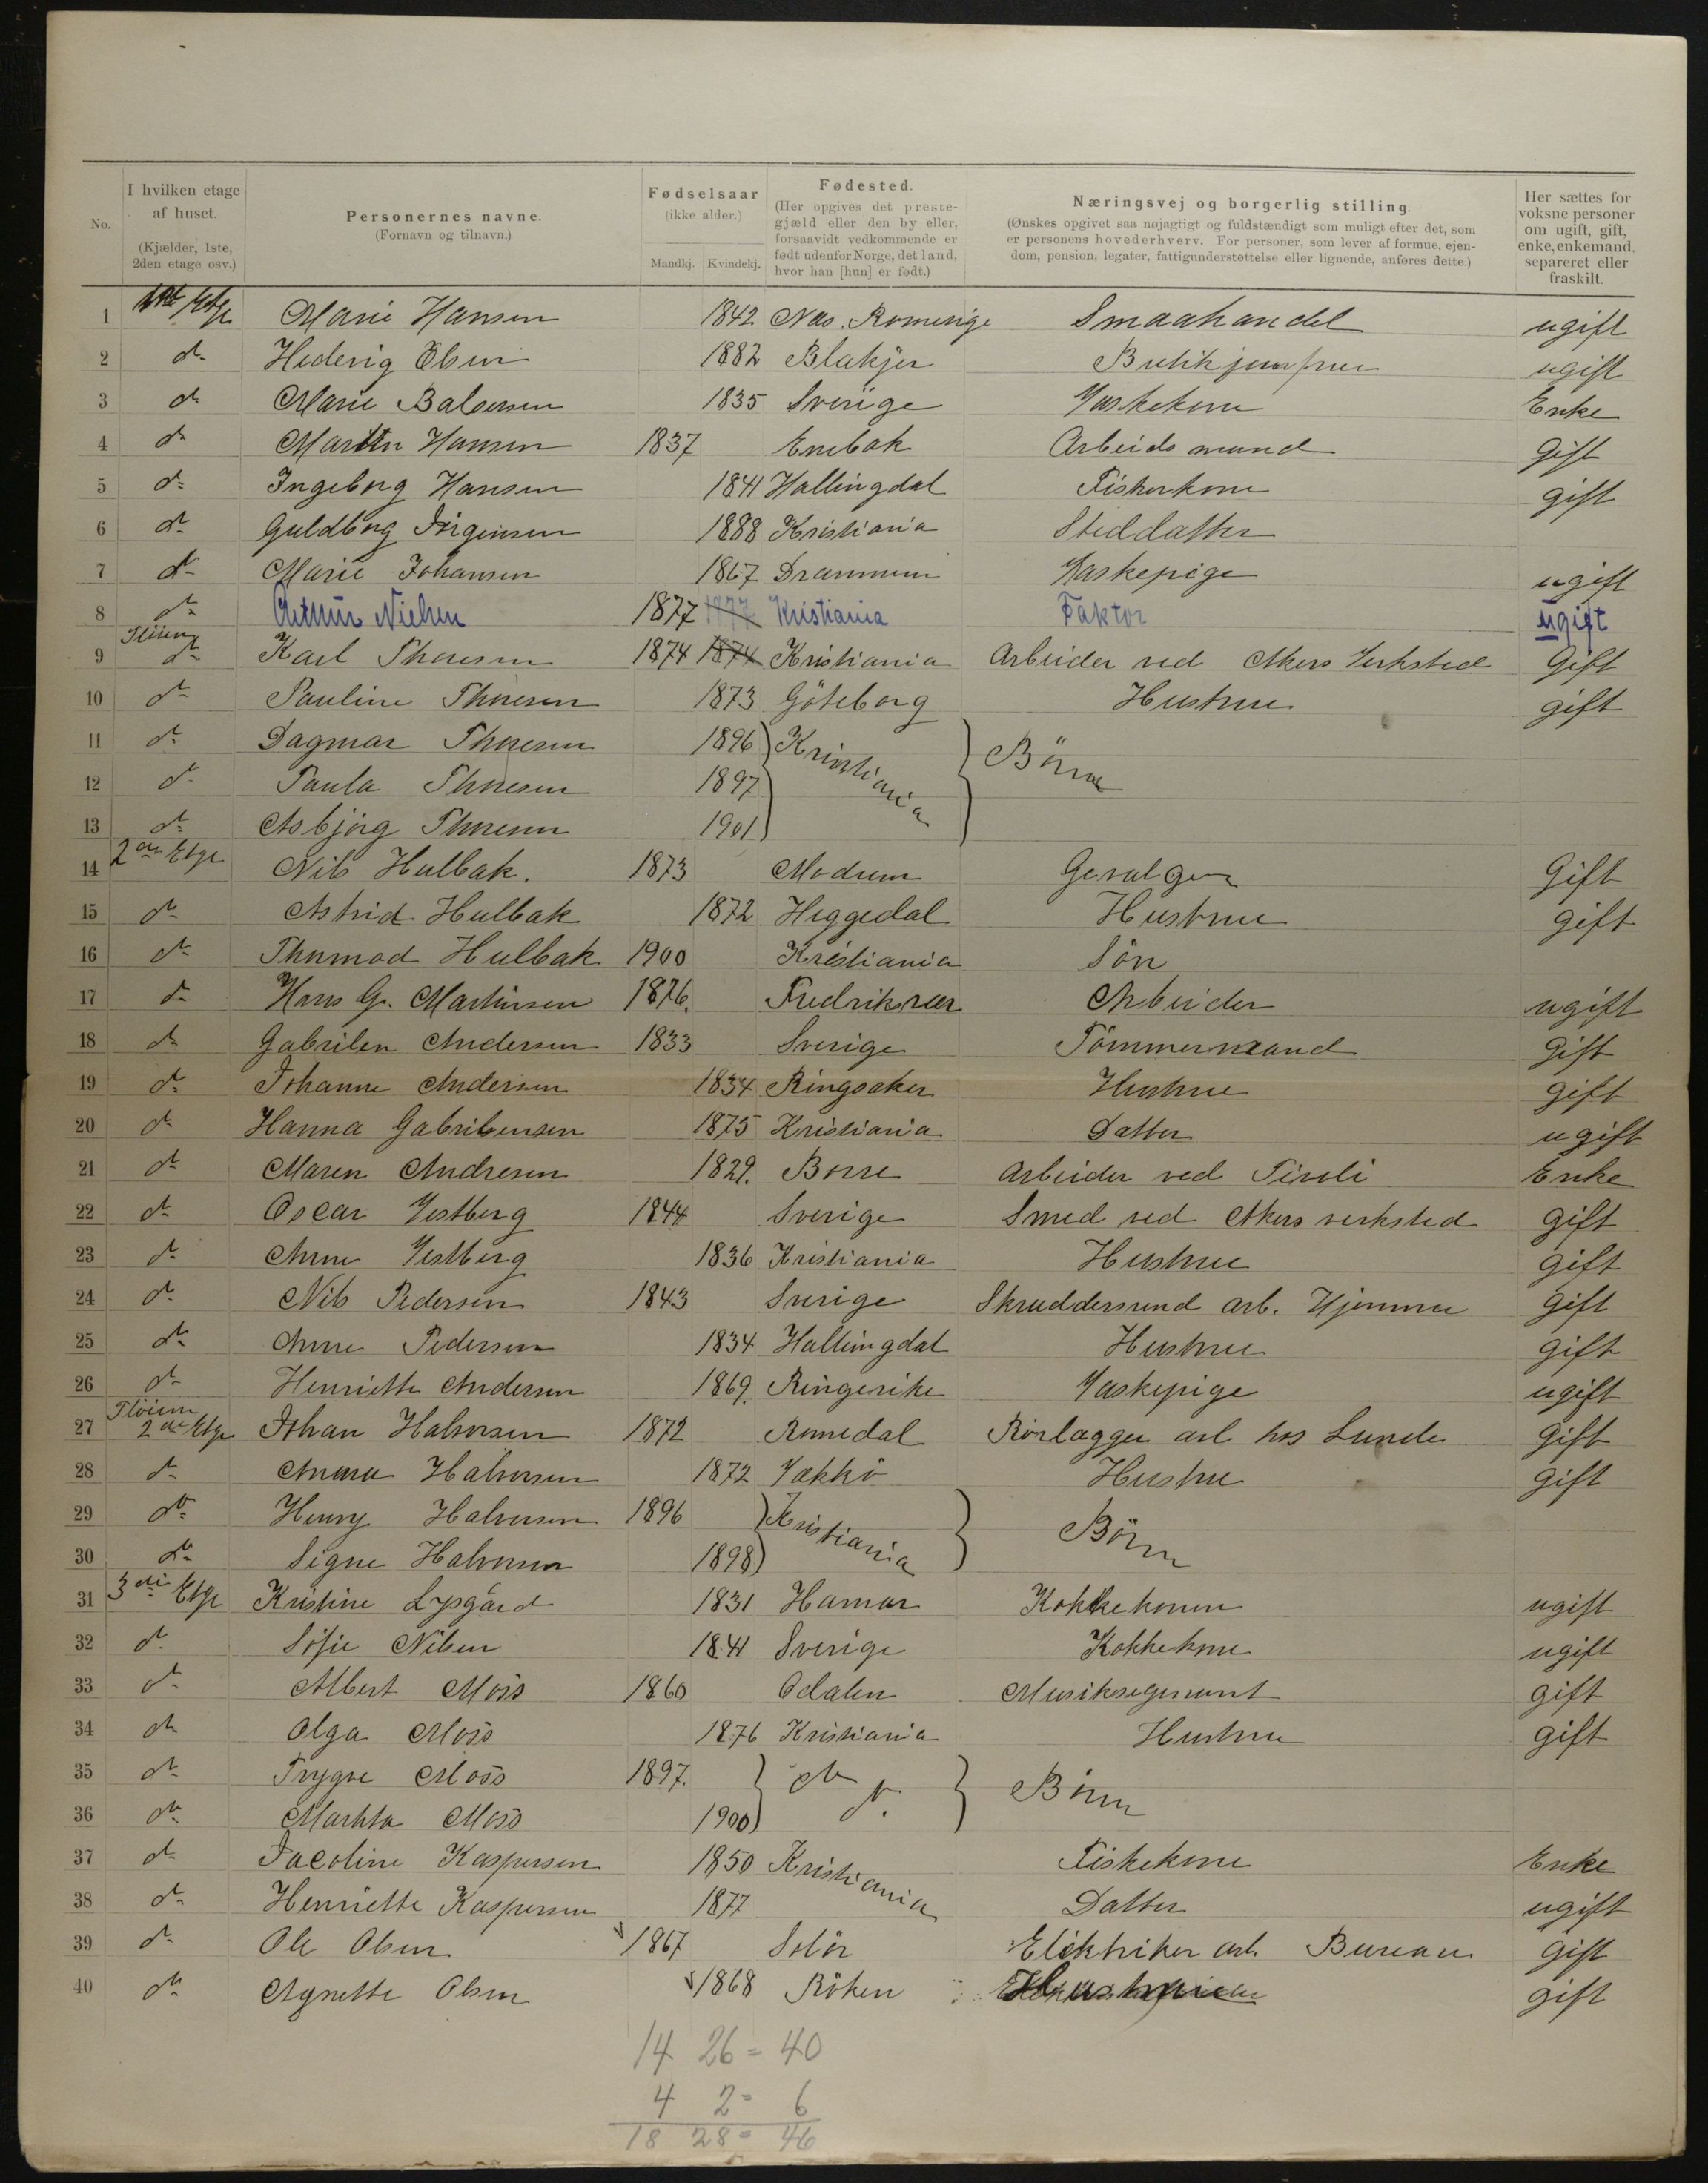 No. I hvilken etage af huset. (Kjælder, 1ste, 2den etage osv.) Personernes navne. (Fornavn og tilnavn.) Fødselsaar (ikke alder.) Mandkj. Kvindekj. Fødested. (Her opgives det prestegjæld eller den by eller, forsaavidt vedkommende er født udenfor Norge, det land, hvor han [hun] er født.) Næringsvej og borgerlig stilling. (Ønskes opgivet saa nøjagtigt og fuldstændigt som muligt efter det, som er personens hovederhverv. For personer, som lever af formue, ejendom, pension, legater, fattigunderstøttelse eller lignende, anføres dette.) Her sættes for voksne personer om ugift, gift, enke, enkemand, separeret eller fraskilt.
1 1ste Etge Marie Hansen 1842 Næs. Romerige Smaahandel ugift
2 do Hedevig Olsen 1882 Blakjer Butikjomfru ugift
3 do Marie Balsersen 1835 Sverige Vaskekone Enke
4 do Martin Hansen 1837 Enebak Arbeidsmand gift
5 do Ingeborg Hansen 1841 Hallingdal Fiskerkone gift
6 do Guldborg Jörgensen 1888 Kristiania Steddatter
7 do Marie Johansen 1867 Drammen Vaskepige ugift
8 do Nielsen 1877 1877 Kristiania Faktor ugift
9 Flöien do Karl Thoresen 1874 1874 Kristiania Arbeider ved Akers Verksted Gift
10 do Pauline Thoresen 1873 Göteborg Hustrue gift
11 do Dagmar Thoresen 1896 Kristiania Börn
12 do Paula Thoresen 1897
13 do Asbjörg Thoresen 1901
14 2den Etge Nils Hulbak. 1873 Modum Gift
15 do Astrid Hulbak 1872 Heggedal Hustrue gift
16 do Thormod Hulbak 1900 Kristiania Sön
17 do Hans G. Martinsen 1876. Arbeider ugift
18 do Gabrilen Andersen 1833 Sverige Tömmermand Gift
19 do Johanne Andersen 1834 Ringsaker Hustrue gift
20 do Hanna Gabrilensen 1875 Kristiania Datter ugift
21 do Maren Andresen 1829. Borre Arbeider ved Tivoli Enke
22 do Oscar Vestberg 1844 Sverige Smed ved Akers verksted gift
23 do Anne Vestberg 1836 Kristiania Hustrue gift
24 do Nils Pedersen 1843 Sverige Skræddersvend arb. Hjemme Gift
25 do Anne Pedersen 1834 Hallingdal Hustrue gift
26 do Henriette Andersen 1869. Ringerike Vaskepige ugift
27 Flöien 2den Etge Johan Halvorsen 1872 Romedal Rörlægger arb hos Lunde gift
28 do Anna Halvorsen 1872 Hustrue gift
29 do Henry Halvorsen 1896 Kristiania Börn
30 do Signe Halvorsen 1898
31 3die Etge Kristine Lysgård 1831 Hamar Kokkekonne ugift
32 do Sofie Nilsen 1841 Sverige Kokkekone ugift
33 do Albert Moss 1860 Odalen gift
34 do Olga Moss 1876 Kristiania Hustrue gift
35 do Trygve Moss 1897. do Börn
36 do Martha Moss 1900 do
37 do Jacoline Kaspersen 1850 Kristiania Fiskekone Enke
38 do Henriette Kaspersen 1877 Datter ugift
39 do Ole Olsen 1867 Solör Elektriker arb. Bureau gift
40 do Agnette Olsen 1868 Röken Hustrue gift
14 26 = 40
4 2 = 6
18 28 = 46